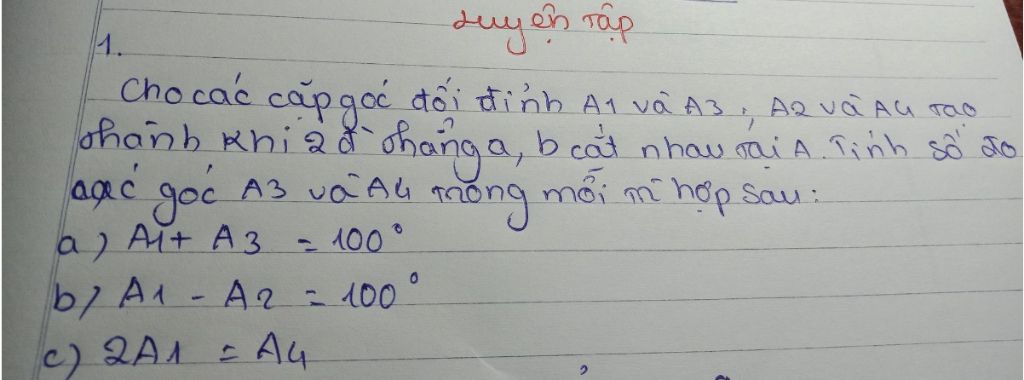 Luyện tập
1.
Cho các cặp góc đối đỉnh A1 và A3 ; A2 và A4 tạo
thành khi 2 đ̀ thẳng a, b cắt nhau tại A. Tính số đo
các góc A3 và A4 trong mỗi tr̀ hợp sau :
a) A1 + A3 = 100°
b) A1 - A2 = 100°
c) 2A1 = A4